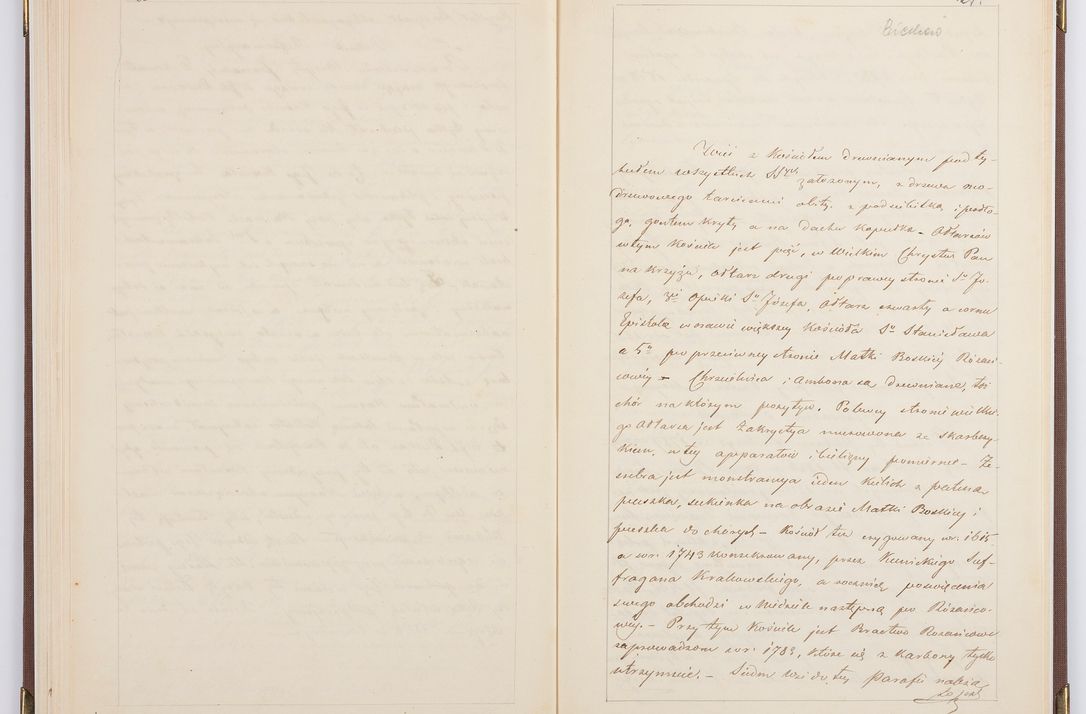 Wieś z Kościołem drewnianym pod ty-
tułem wszystkich SS^ych założonym, z drzewa mo-
drzewowego tarcicami obity z podsiebitką i podło-
gą, gontem kryty a na dachu kopułka – Ołtarzów
w tym Kościele jest pięć, w Wielkim Chrystus Pan
na krzyżu, Ołtarz drugi po prawey stronie S^o Jó-
zefa, 3^ci Opieki S^o Józefa, Ołtarz czwarty a cornu
Epistolæ w nawie większey Kościoła S^o Stanisława
a 5^ty po przeciwney stronie Matki Boskiéy Różań-
cowéy – Chrzcielnica i Ambona są drewniane, toż
chór na którym pozytyw. Po lewey stronie wielkie-
go Ołtarza jest Zakrystya murowana ze skarbczy-
kiem, w tey apparatów i bielizny pomierne – Ze
srebra jest monstrancya ieden kielich z pateną
puszka, sukienka na obrazie Matki Boskiey i
puszka do chorych – Kościół ten erygowany w r. 1615
a w r. 1743 konsekrowany, przez Kunickiego Suf-
fragana Krakowskiego, a rocznicę poświęcenia
swego obchodzi w Niedziele następną po Różańco-
wéy. – Przy tym Kościele jest Bractwo Różańcowe
zaprowadzone w r. 1783, które się z karbony tylko
utrzymuie. – Siedm wsi do tey Parafii należą
to jest